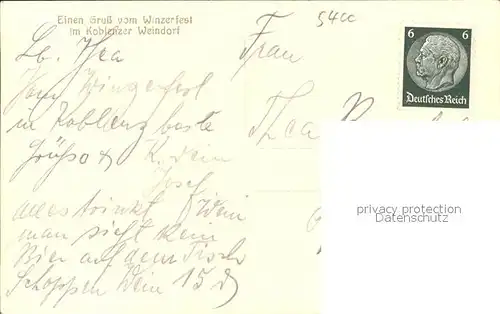 Einen Gruß vom Winzerfest
im Koblenzer Weindorf
5400
Lb. Thea
Vom Wingerfest
in Koblenz beste
Grüße
dein
Josef
alles trinkt Wein
man sieht kein
Bier auf dem Tisch
Schoppen Wein 15 d
Frau
Thea
6 6
Deutsches Reich
privacy protection
Datenschutz